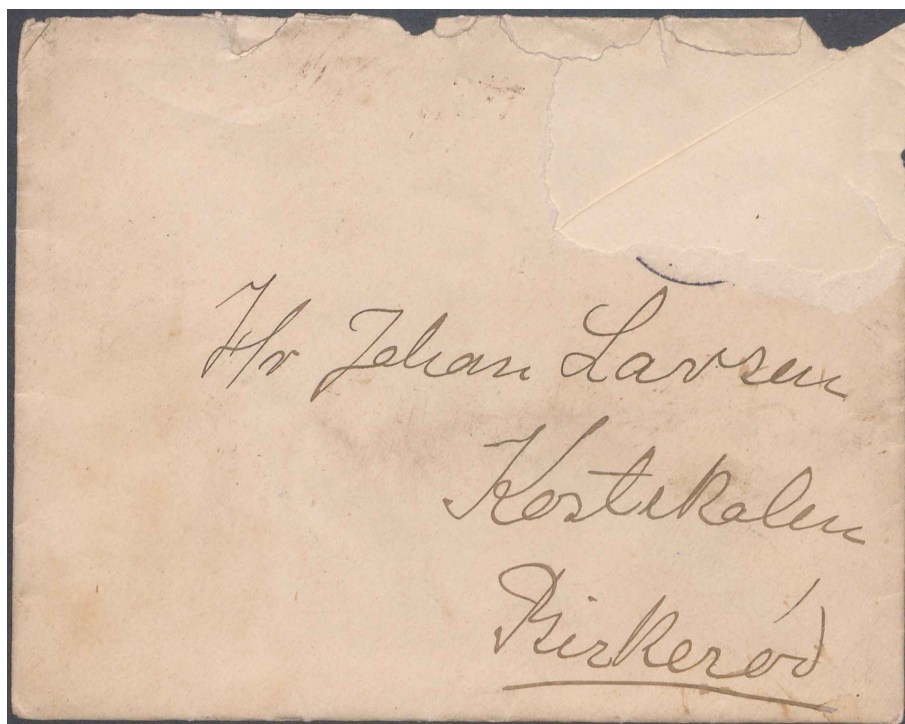 Hr Johan Larsen
Kostskolen
Birkerød